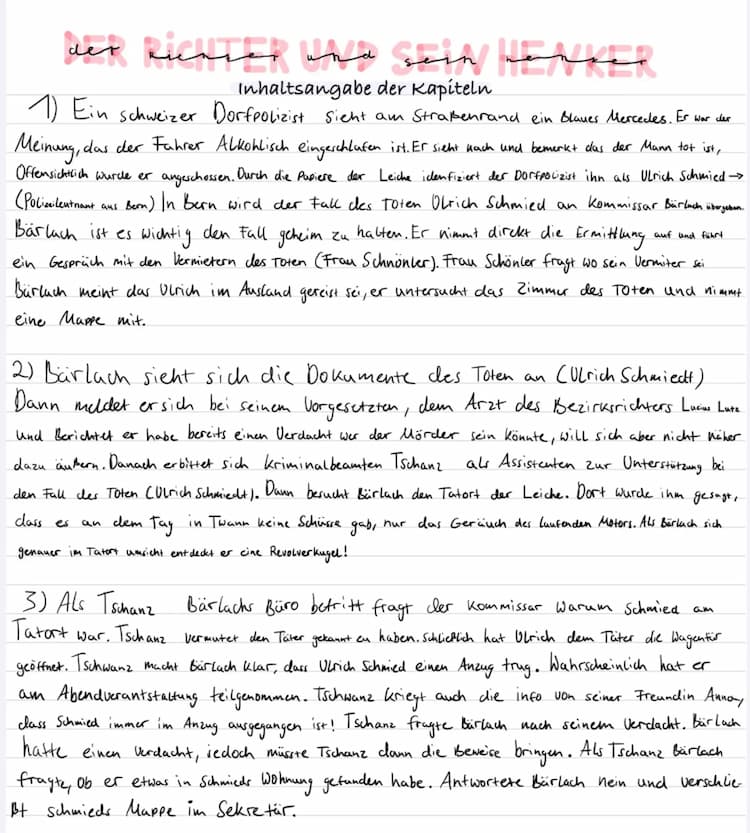 der Richter und sein Henker
DER RiCHTER UND SEiN HENKER
Inhaltsangabe der Kapiteln
1) Ein schweizer Dorfpolizist sieht am Straßenrand ein Blaues Mercedes. Er war der
Meinung, das der Fahrer Alkoholisch eingeschlafen ist. Er sieht nach und bemerkt das der Mann tot ist,
Offensichtlich wurde er angeschossen. Durch die Papiere der Leiche idenfiziert der Dorfpolizist ihn als Ulrich Schmied →
(Polizeileutnant aus Bern) In Bern wird der Fall des Toten Ulrich Schmied an Kommissar Bärlach übergeben.
Bärlach ist es wichtig den Fall geheim zu halten. Er nimmt direkt die Ermittlung auf und führt
ein Gespräch mit den Vermietern des Toten (Frau Schnönler). Frau Schönler fragt wo sein Vermiter sei
Bärlach meint das Ulrich im Ausland gereist sei, er untersucht das Zimmer des Toten und nimmt
eine Mappe mit.
2) Bärlach sieht sich die Dokumente des Toten an (Ulrich Schmiedt)
Dann meldet er sich bei seinem Vorgesetzten, dem Arzt des Bezirksrichters Lucius Lutz
und Berichtet er habe bereits einen Verdacht wer der Mörder sein könnte, will sich aber nicht näher
dazu äußern. Danach erbittet sich kriminalbeamten Tschanz als Assistenten zur Unterstützung bei
den Fall des Toten (Ulrich Schmiedt). Dann besucht Bärlach den Tatort der Leiche. Dort wurde ihm gesagt,
dass es an dem Tag in Twann keine Schüsse gab, nur das Geräuch des laufenden Motors. Als Bärlach sich
genauer im Tatort umsicht entdeckt er eine Revolverkugel!
3) Als Tschanz Bärlachs Büro betritt fragt der Kommissar warum Schmied am
Tatort war. Tschanz vermutet den Täter gekannt zu haben. Schließlich hat Ulrich dem Täter die Wagentür
geöffnet. Tschwanz macht Bärlach klar, dass Ulrich Schmied einen Anzug trug. Wahrscheinlich hat er
am Abendverantstaltung teilgenommen. Tschwanz kriegt auch die info von seiner Freundin Anna,
dass Schmied immer im Anzug ausgegangen ist! Tschanz fragte Bärlach nach seinem Verdacht. Bärlach
hatte einen Verdacht, jedoch müsste Tschanz dann die Beweise bringen. Als Tschanz Bärlach
fragte, ob er etwas in Schmieds Wohnung gefunden habe. Antwortete Bärlach nein und verschlie-
ßt schmieds Mappe im Sekretär.